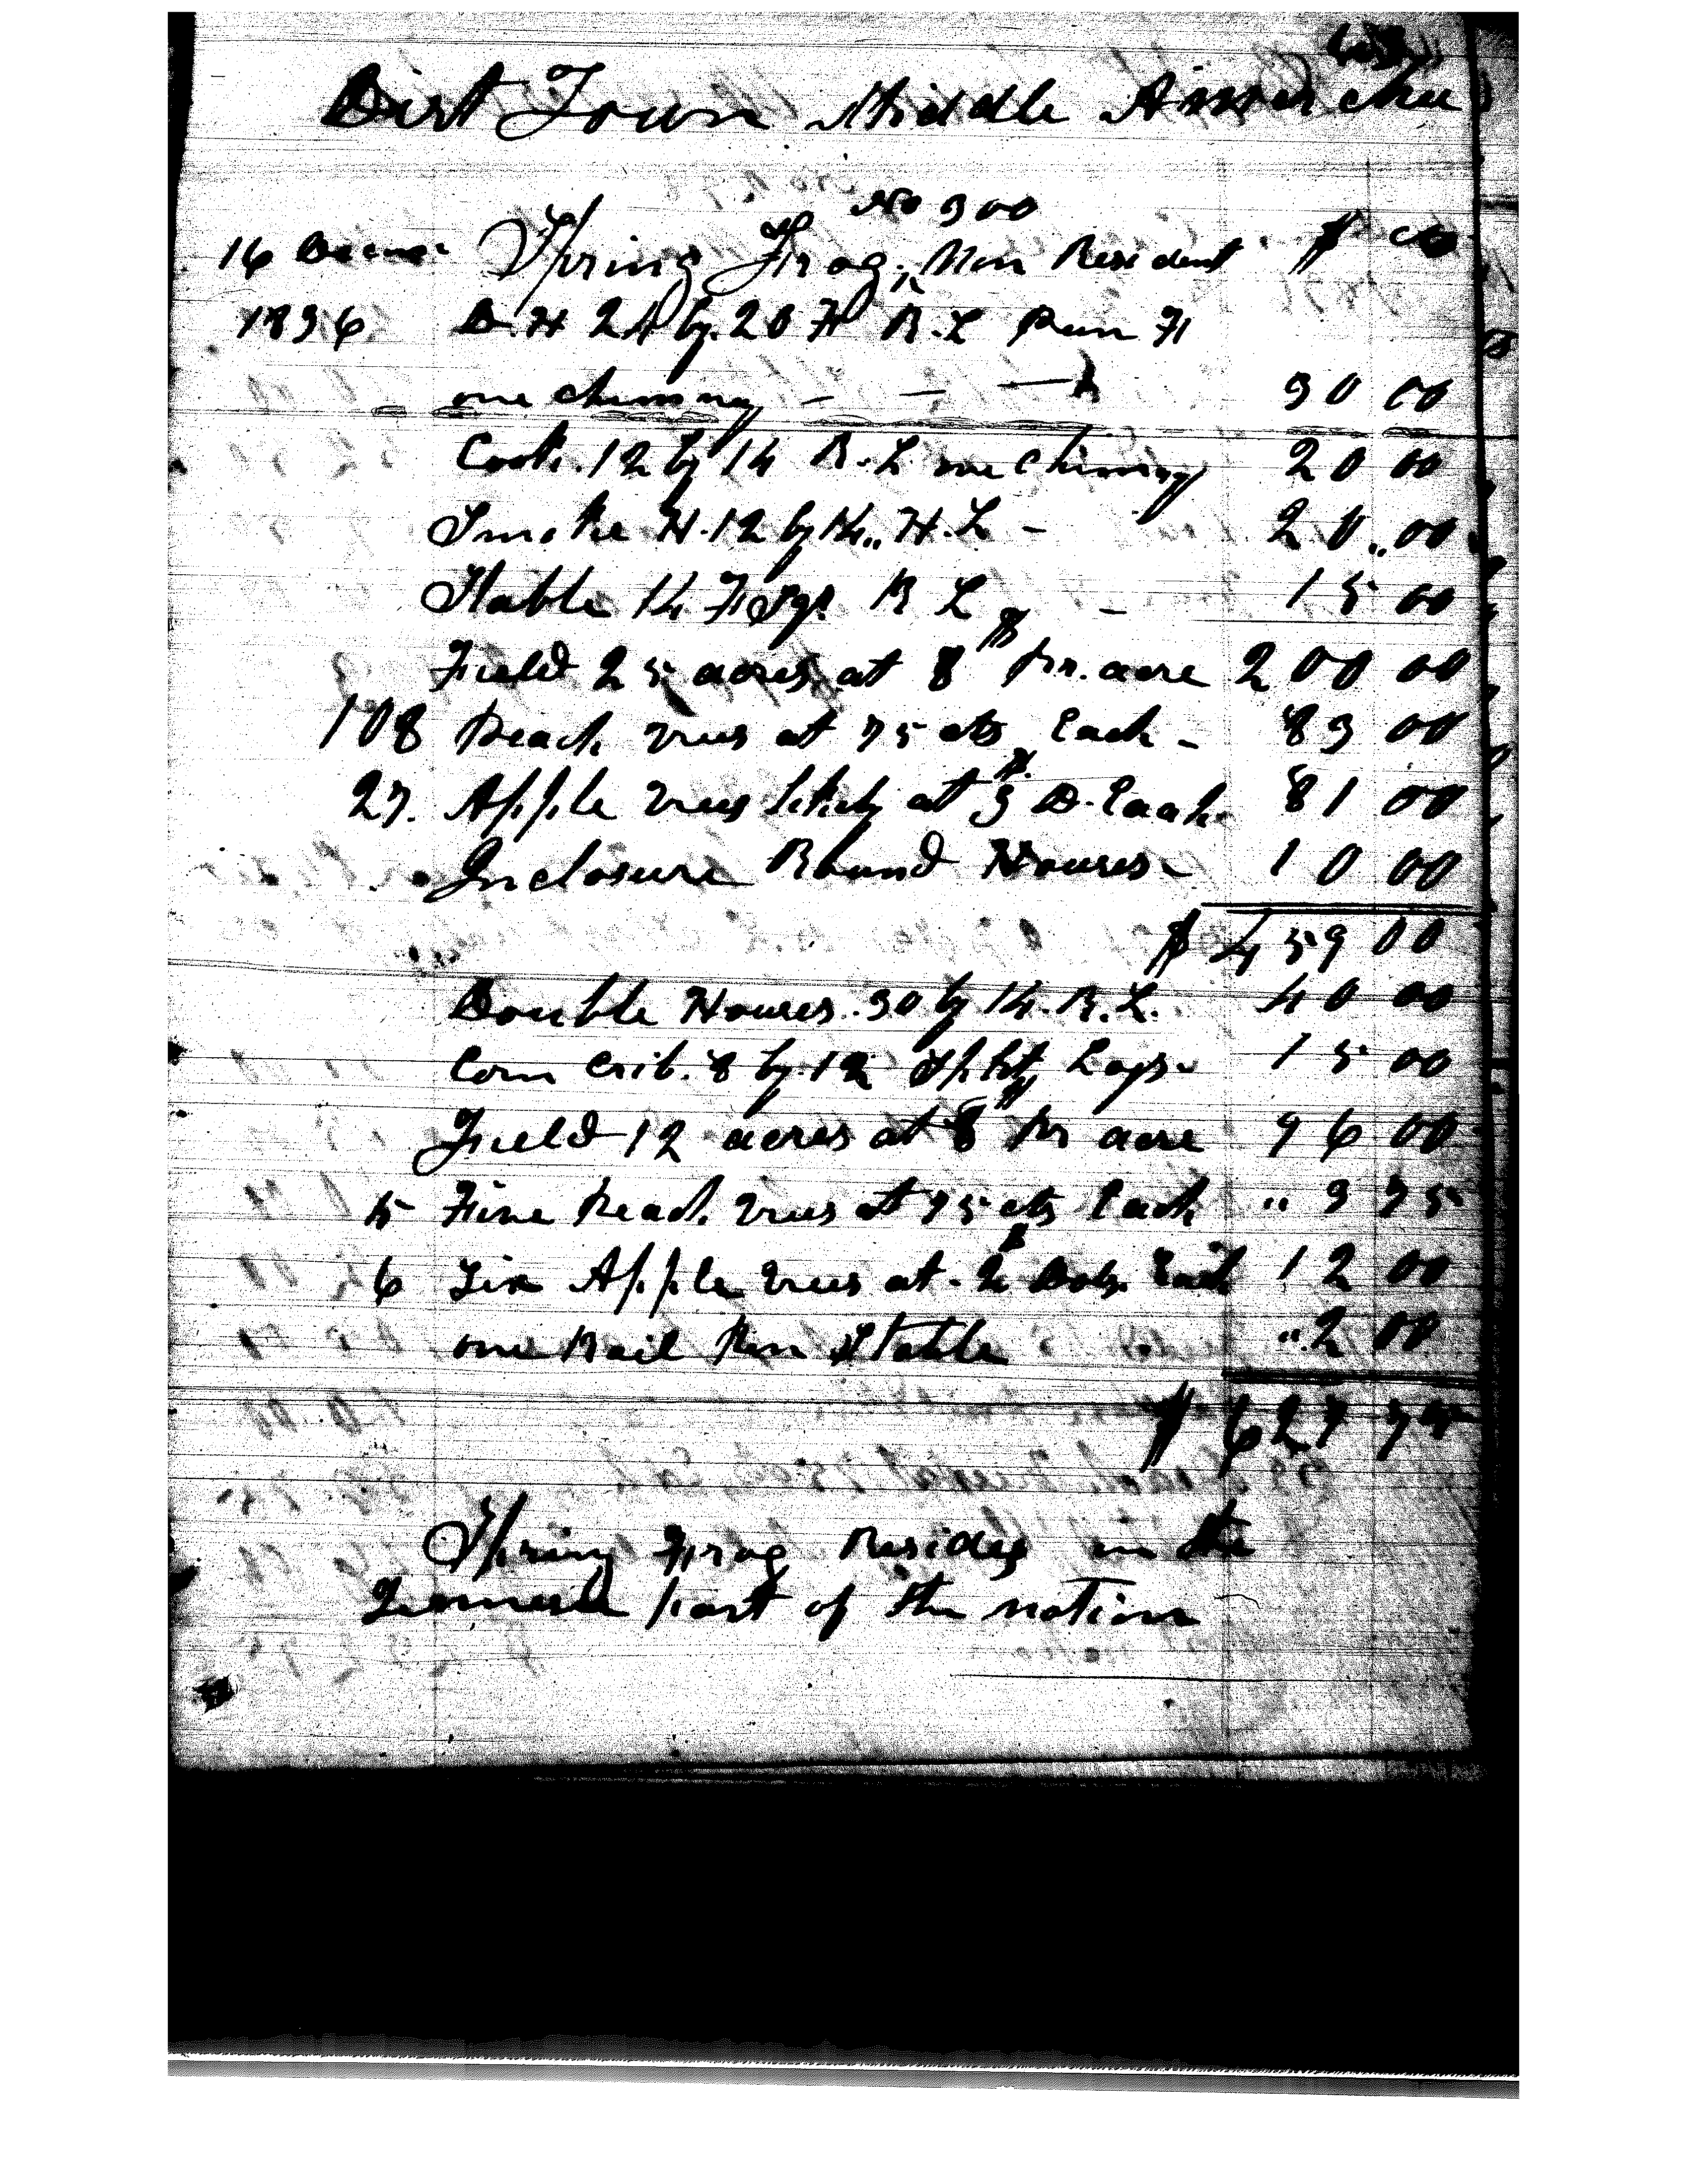 Dirt Town Middle Armuchee
No 300
16 Decmr Spring Frog, Non Resident $ cts
1836 D. H 21 by 20 F R. L Pun Fl
one chimney - - - 30 00
Cook. 12 by 14 R. L one chimney 20 00
Smoke H. 12 by 14,, H. L - 20,,00
Stable 14 F Sqr R L - 15 00
Field 25 acres at 8$ pr. acre 200 00
108 Peach trees at 75 cts Each - 83 00
27. Apple trees at 3 D. Each 81 00
Inclosure Round Houses - 10 00
$ 459 00
Double Houses. 30 by 14. R. L. 40 00
Corn Crib. 8 by 12 Split Logs - 15 00
Field 12 acres at 8$ pr acre 96 00
5 Five Peach trees at 75 cts Each ,, 3 75
6 Six Apple trees at 2 Dols. Each 12 00
one Rail Pen Stable ,,2 00
$ 627 75
Spring Frog Resides in the
Tennessee part of the nation